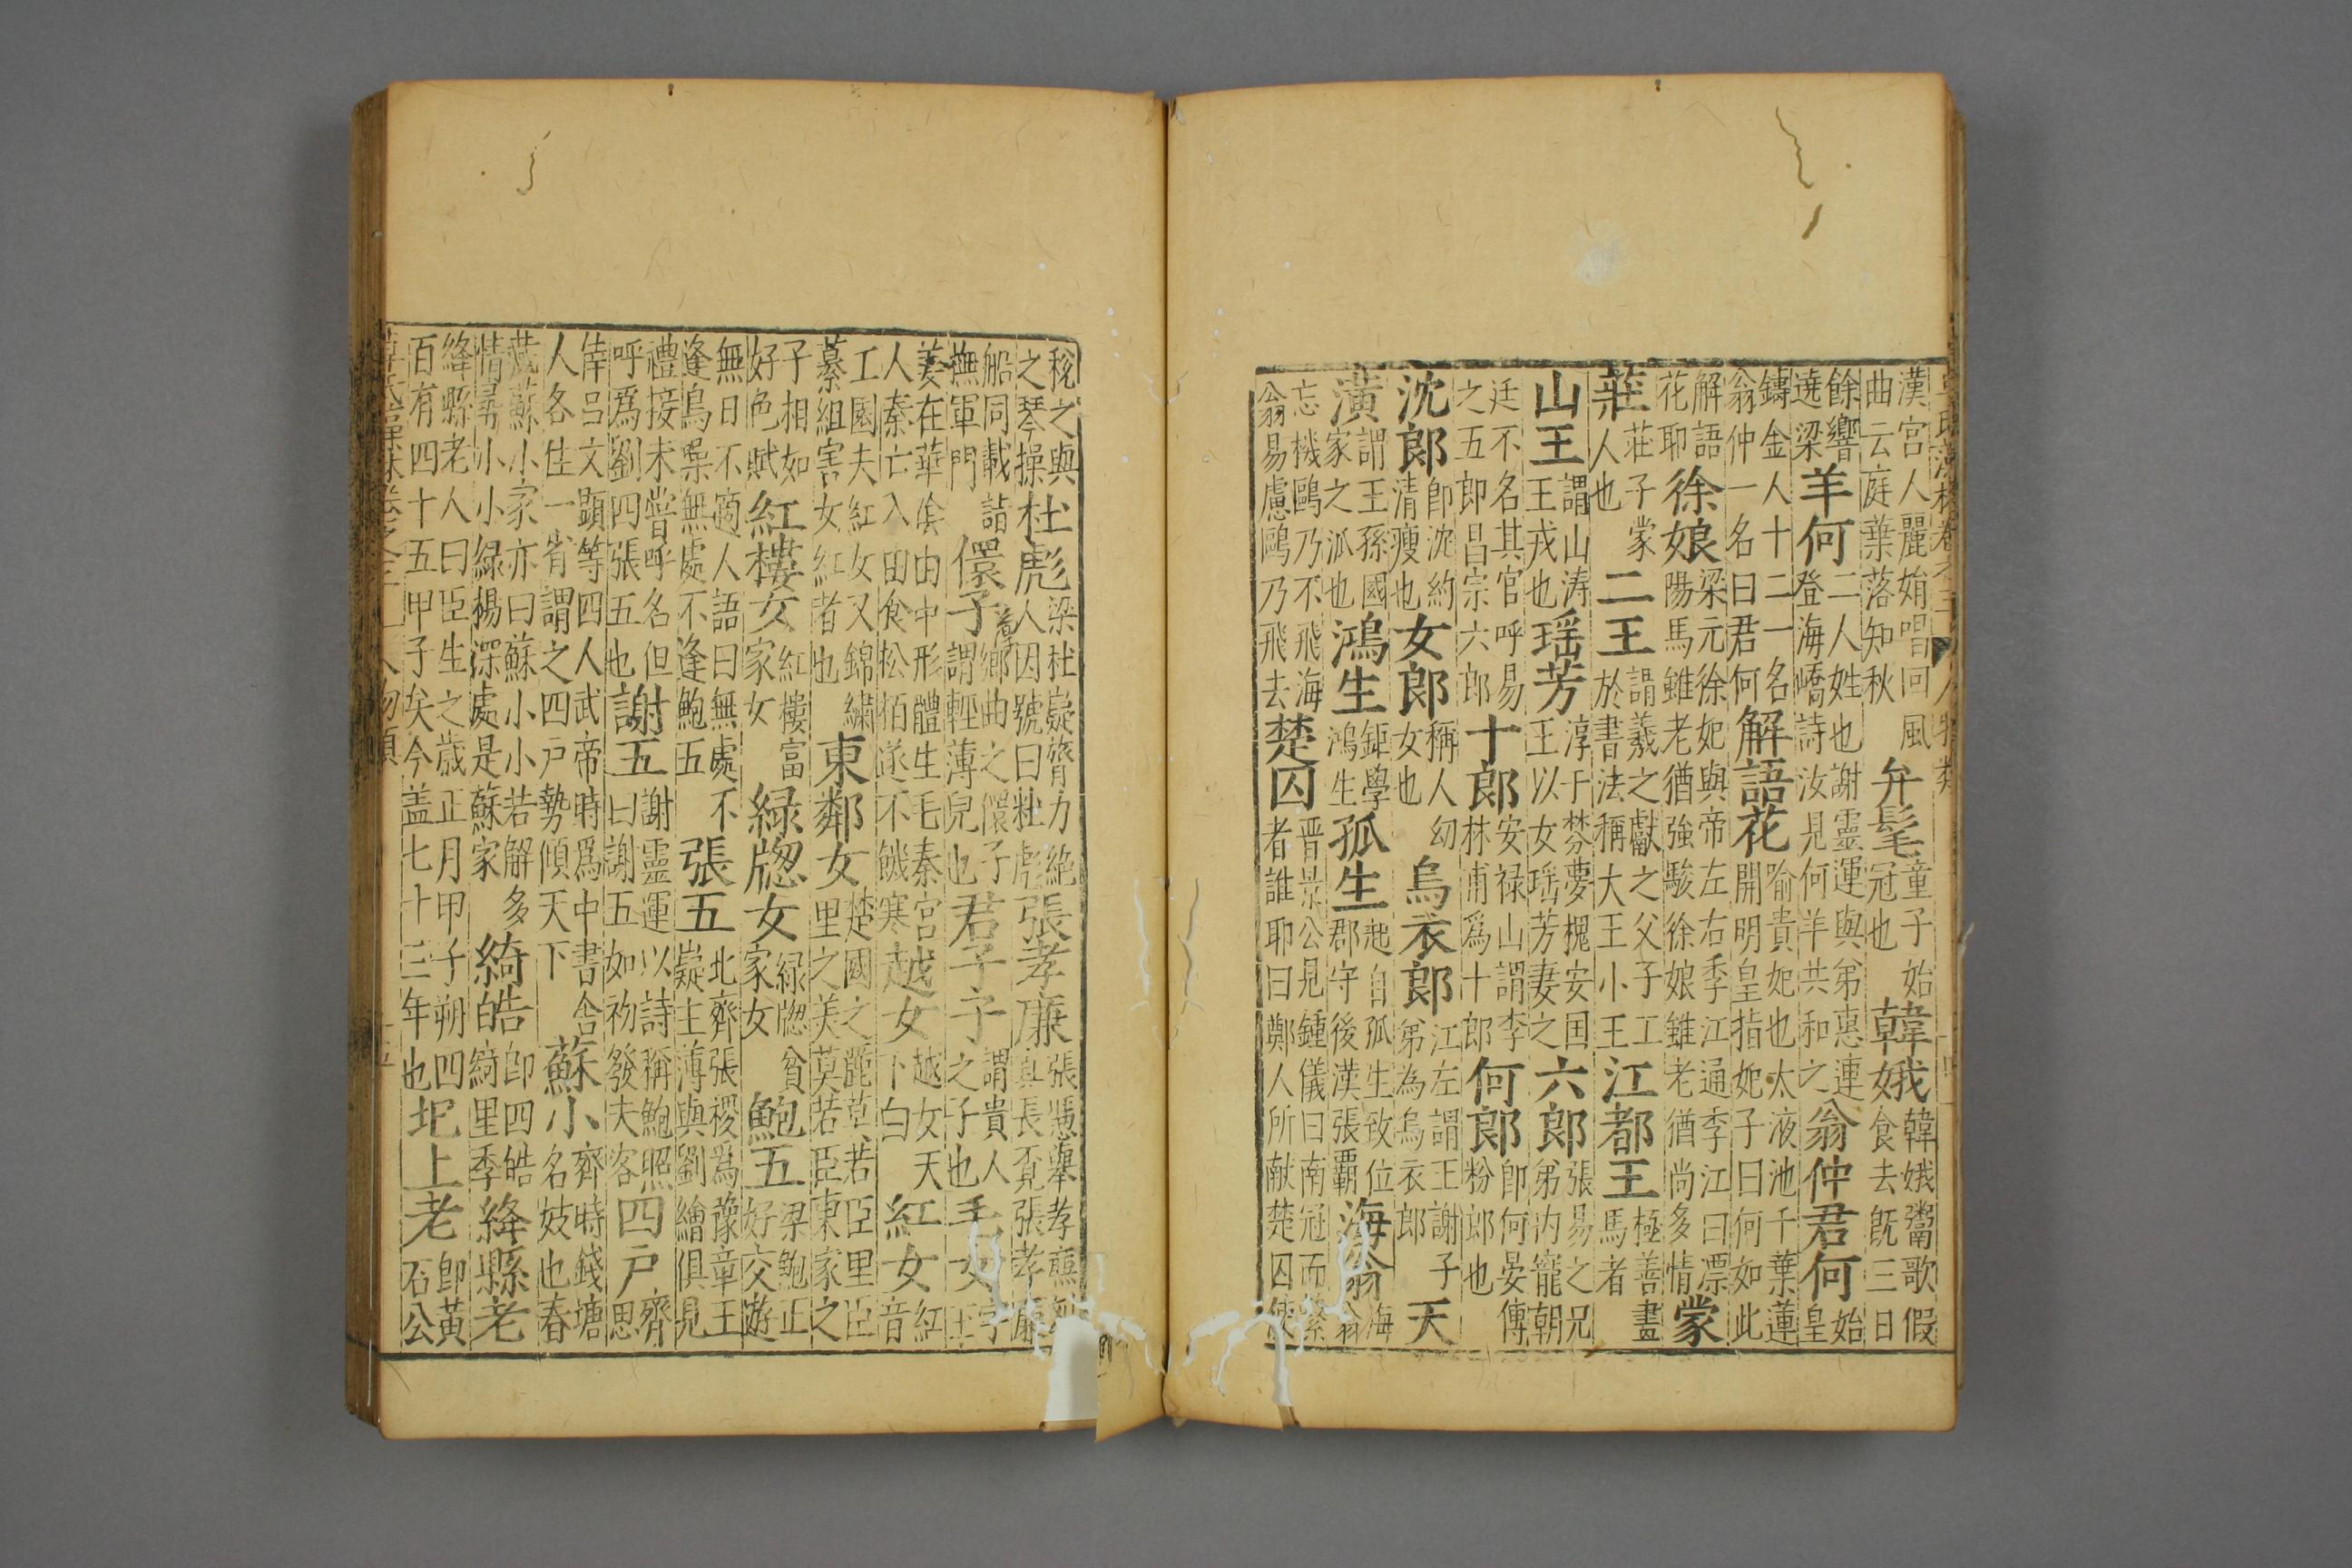 漢宮人麗娟唱回風曲云庭葉落知秋 弁髦 童子始冠也 韓娥 韓娥鬻歌假食去旣三日
餘響遶梁 羊何 二人姓也謝靈運與弟惠連登海嶠詩汝見何羊共和之 翁仲君何 始皇
鑄金人十二一名翁仲一名曰君何 解語花 喻貴妃也太液池千葉蓮開明皇指妃子曰何如此
解語花耶 徐娘 梁元徐妃與帝左右季江通季江曰凓陽馬雖老猶強駿徐娘雖老猶尚多情 蒙
莊 莊子蒙人也 二王 謂羲之獻之父子工於書法稱大王小王 江都王 極善畫馬者
山王 謂山涛王戎也 瑶芳 淳于棼夢槐安国王以女瑶芳妻之 六郎 張易之兄弟内寵朝
廷不名其官呼易之五郎昌宗六郎 十郎 安禄山謂李林甫爲十郎 何郎 卽何晏傅粉郎也
沈郎 卽沈約清瘦也 女郎 稱人幼女也 烏衣郎 江左謂王謝子弟為烏衣郎 天
潢 謂王孫國家之派也 鴻生 鉅學鴻生 孤生 起自孤生致位郡守後漢張覇 海翁 海翁
忘機鷗乃不飛海翁易慮鷗乃飛去 楚囚 晋景公見鍾儀曰南冠而縶者誰耶曰鄭人所献楚囚使
稅之與之琴操 杜彪 梁杜嶷膂力絶人因號曰杜彪 張孝廉 張憑舉孝廉真長覔張孝廉
船同載詣撫軍門 儇子 鄉曲之儇子謂輕薄兒也 君子子 謂貴人之子也 毛女 字玉
姜在華陰由中形體生毛秦宮人秦亡入由食松栢遂不饑寒 越女 越女天下白 紅女 紅音
工園夫紅女又錦繡綦組害女紅者也 東鄰女 楚國之麗莫若臣里臣里之美莫若臣東家之
子相如好色賦 紅樓女 紅樓富家女 緑牎女 緑牎貧家女 鮑五 梁鮑正好交遊
無日不適人語曰無處不逢烏噪無處不逢鮑五 張五 北齊張稷爲豫章王嶷主薄與劉繪俱見
禮接未嘗呼名但呼爲劉四張五也 謝五 謝靈運以詩稱鮑照曰謝五如初發夫容 四戸 齊思
倖呂文顯等四人武帝時爲中書舍人各住一省謂之四戸勢傾天下 蘇小 齊時錢塘名妓也春
蔵蘇小家亦曰蘇小小若解多情尋小小緑楊深處是蘇家 綺皓 卽四皓綺里季 絳縣老
絳縣老人曰臣生之歲正月甲子朔四百有四十五甲子矣今盖七十三年也 圯上老 卽黃石公